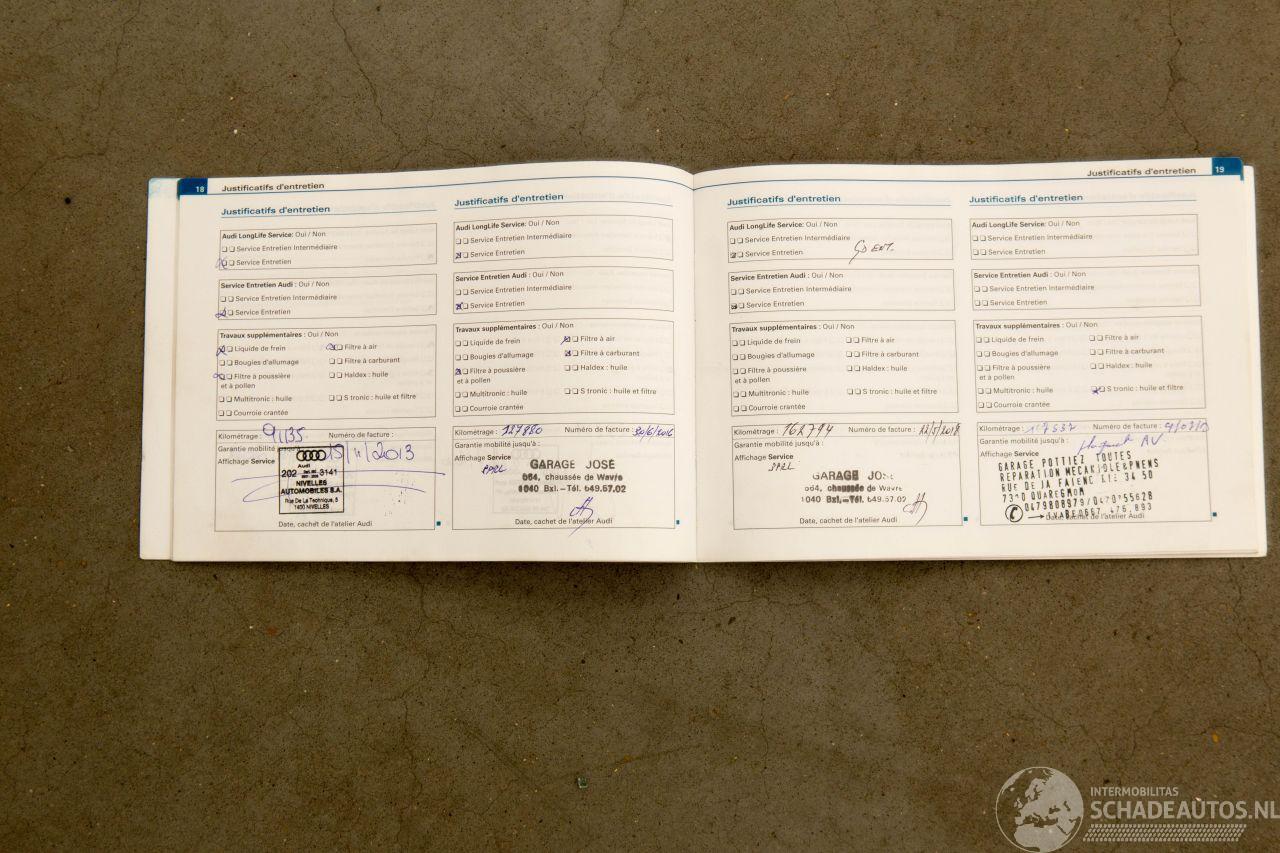 18 Justificatifs d'entretien
Justificatifs d'entretien
Audi LongLife Service: Oui / Non
Service Entretien Intermédiaire
Service Entretien
Service Entretien Audi : Oui / Non
Service Entretien Intermédiaire
Service Entretien
Travaux supplémentaires : Oui / Non
Liquide de frein Filtre à air
Bougies d'allumage Filtre à carburant
Filtre à poussière Haldex : huile
et à pollen
Multitronic : huile S tronic : huile et filtre
Courroie crantée
Kilométrage : 91135 Numéro de facture :
Garantie mobilité jusqu'à :
Affichage Service
15/11/2013
Audi
202 3141
NIVELLES
AUTOMOBILES S.A.
Rue De La Technique, 5
1400 NIVELLES
Date, cachet de l'atelier Audi
Justificatifs d'entretien
Audi LongLife Service: Oui / Non
Service Entretien Intermédiaire
Service Entretien
Service Entretien Audi : Oui / Non
Service Entretien Intermédiaire
Service Entretien
Travaux supplémentaires : Oui / Non
Liquide de frein Filtre à air
Bougies d'allumage Filtre à carburant
Filtre à poussière Haldex : huile
et à pollen
Multitronic : huile S tronic : huile et filtre
Courroie crantée
Kilométrage : 127880 Numéro de facture : 30/6/2016
Garantie mobilité jusqu'à :
Affichage Service
SPRL
GARAGE JOSÉ
064, chaussée de Wavre
1040 Bxl. – Tél. 649.57.02
Date, cachet de l'atelier Audi
Justificatifs d'entretien 19
Justificatifs d'entretien
Audi LongLife Service: Oui / Non
Service Entretien Intermédiaire
Service Entretien GD ENT.
Service Entretien Audi : Oui / Non
Service Entretien Intermédiaire
Service Entretien
Travaux supplémentaires : Oui / Non
Liquide de frein Filtre à air
Bougies d'allumage Filtre à carburant
Filtre à poussière Haldex : huile
et à pollen
Multitronic : huile S tronic : huile et filtre
Courroie crantée
Kilométrage : 162794 Numéro de facture : 22/5/2018
Garantie mobilité jusqu'à :
Affichage Service
SPRL
GARAGE JOSÉ
064, chaussée de Wavre
1040 Bxl. – Tél. 649.57.02
Date, cachet de l'atelier Audi
Justificatifs d'entretien
Audi LongLife Service: Oui / Non
Service Entretien Intermédiaire
Service Entretien
Service Entretien Audi : Oui / Non
Service Entretien Intermédiaire
Service Entretien
Travaux supplémentaires : Oui / Non
Liquide de frein Filtre à air
Bougies d'allumage Filtre à carburant
Filtre à poussière Haldex : huile
et à pollen
Multitronic : huile S tronic : huile et filtre
Courroie crantée
Kilométrage : Numéro de facture :
Garantie mobilité jusqu'à : AV
Affichage Service
GARAGE POTTIEZ TOUTES
REPARATION
RUE DE
QUAREGNON
0479808979/
Date, cachet de l'atelier Audi
INTERMOBILITAS
SCHADEAUTOS.NL